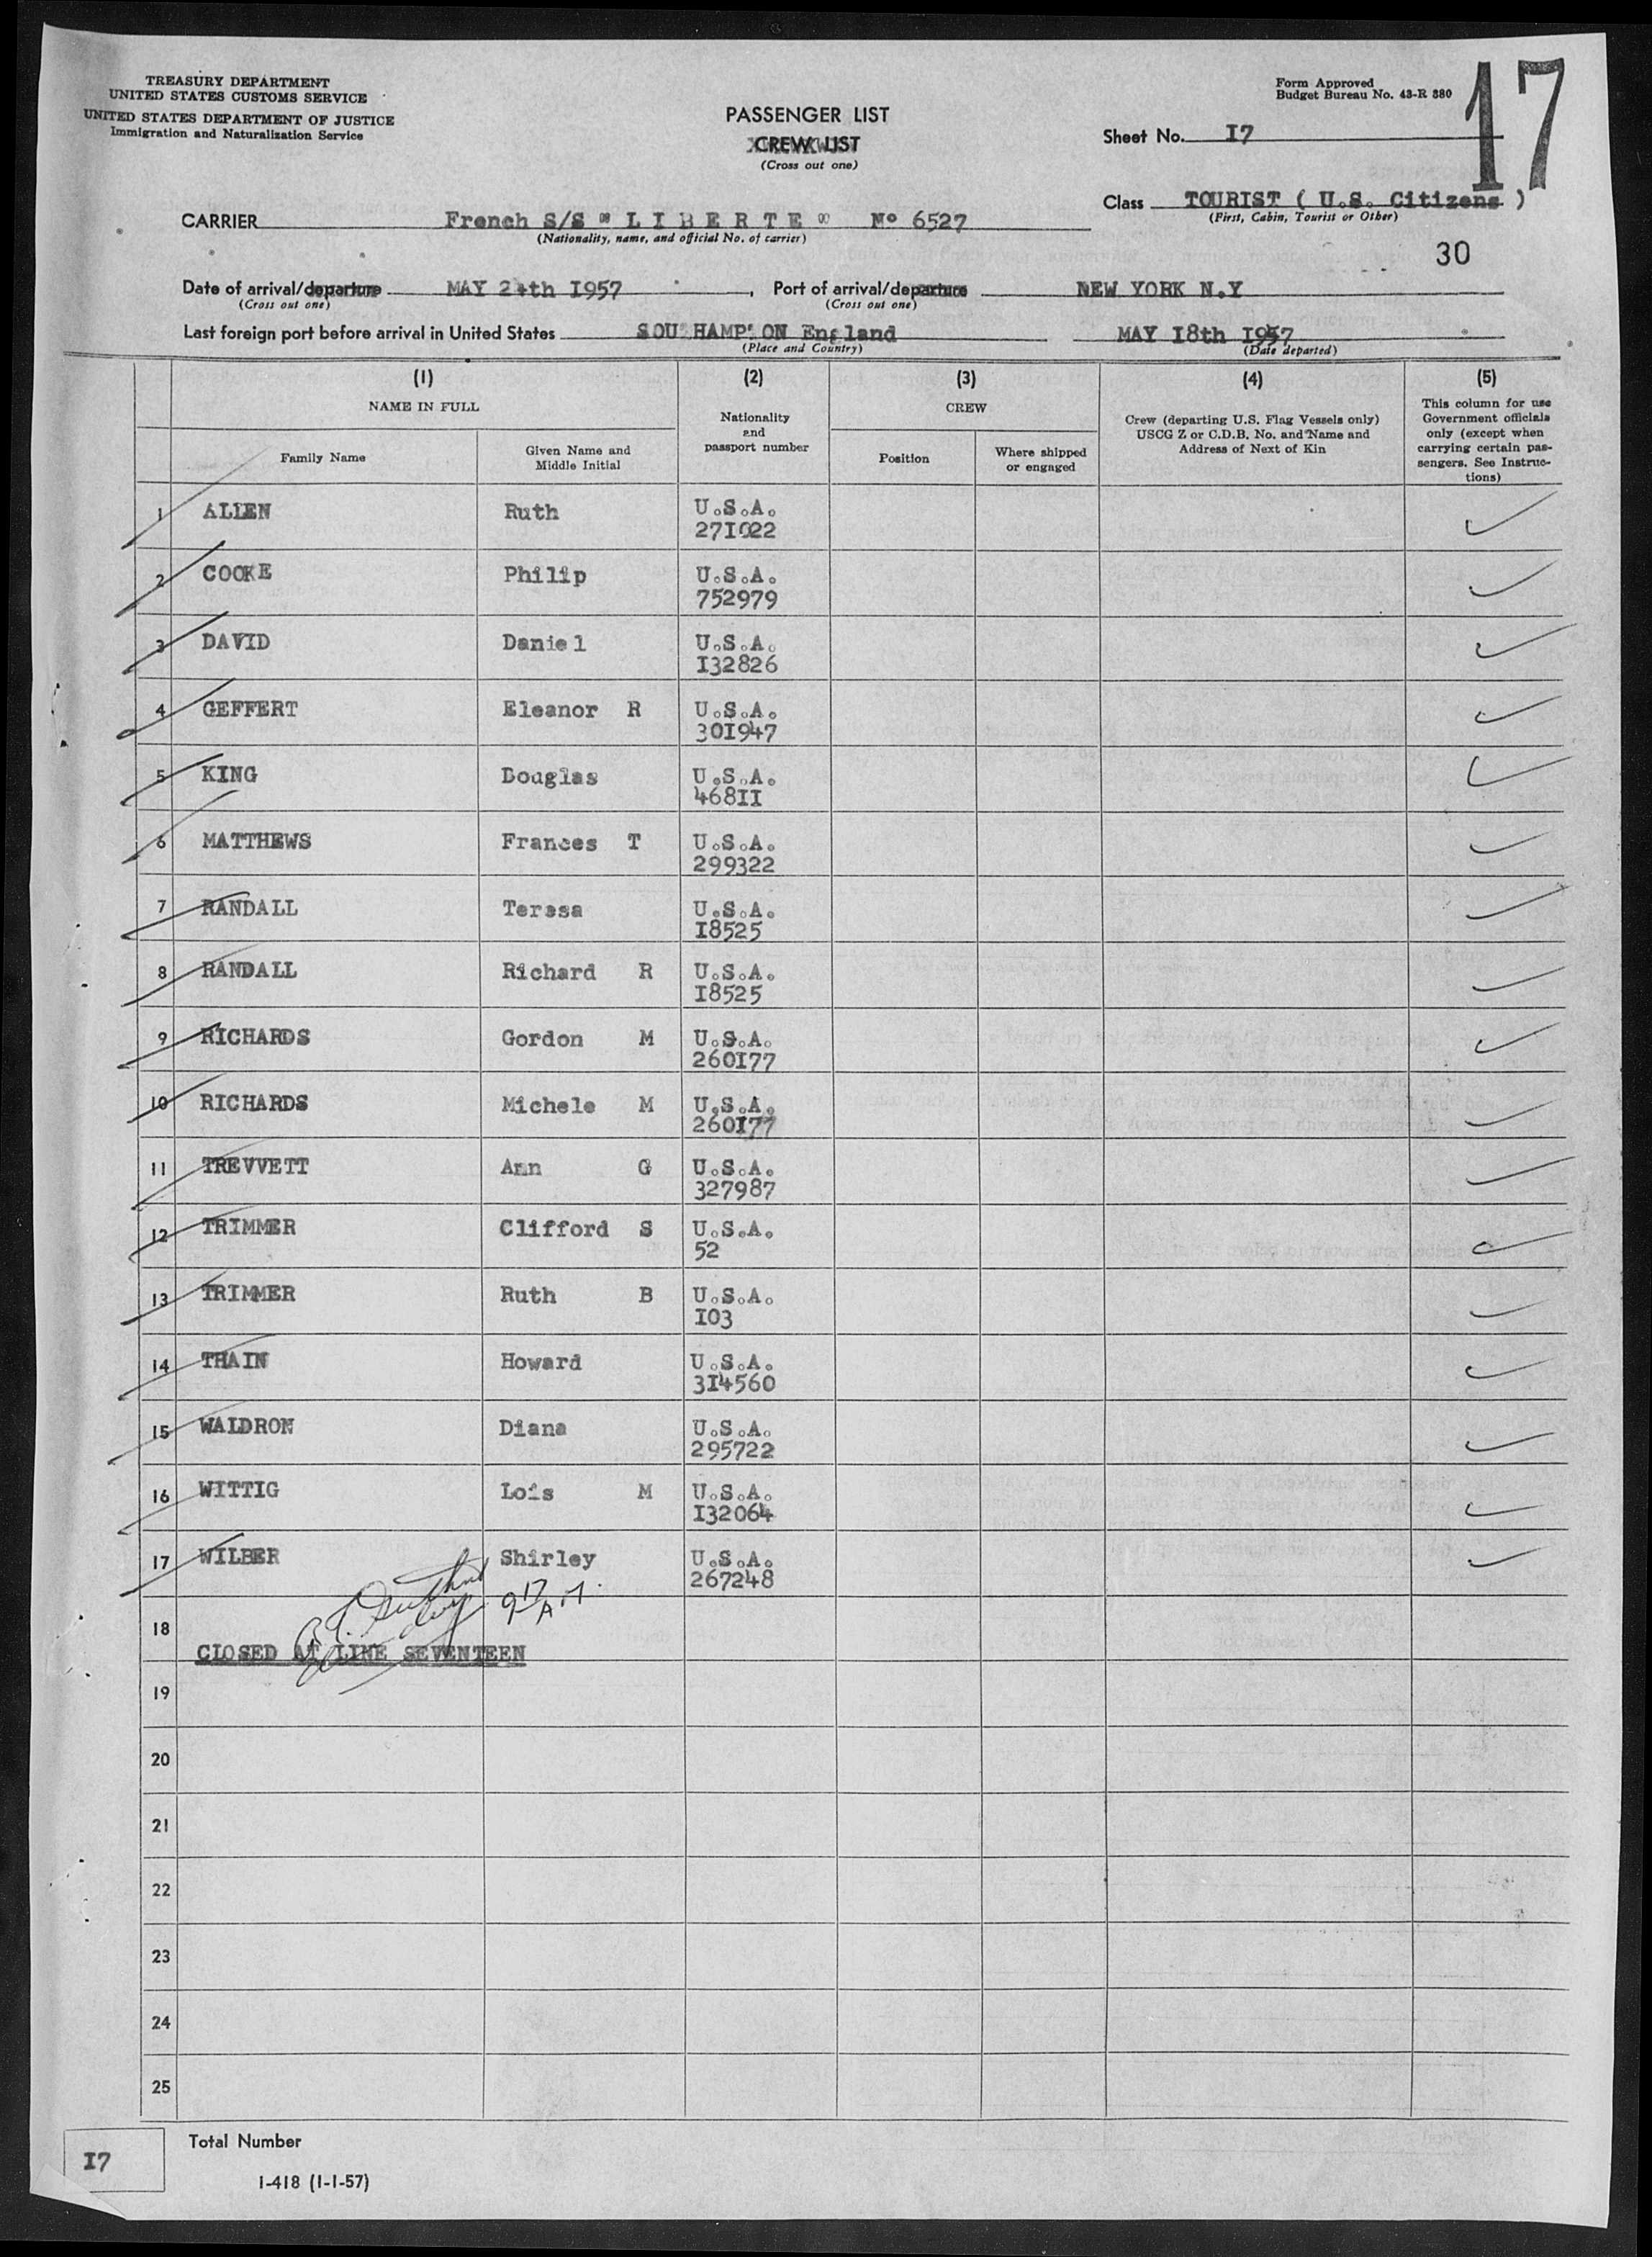 TREASURY DEPARTMENT
UNITED STATES CUSTOMS SERVICE
UNITED STATES DEPARTMENT OF JUSTICE
Immigration and Naturalization Service
Form Approved
Budget Bureau No. 43-R 380
17
PASSENGER LIST
CREW LIST
(Cross out one)
Sheet No. I7
Class TOURIST ( U.S. Citizens )
(First, Cabin, Tourist or Other)
CARRIER French S/S " L I B E R T E " No 6527
(Nationality, name, and official No. of carrier)
30
Date of arrival/departure MAY 24th I957, Port of arrival/departure NEW YORK N.Y
(Cross out one) (Cross out one)
Last foreign port before arrival in United States SOU HAMP ON England MAY I8th I957
(Place and Country) (Date departed)
(1) (2) (3) (4) (5)
NAME IN FULL
Family Name
Given Name and
Middle Initial
Nationality
and
passport number
CREW
Position
Where shipped
or engaged
Crew (departing U.S. Flag Vessels only)
USCG Z or C.D.B. No. and Name and
Address of Next of Kin
This column for use
Government officials
only (except when
carrying certain pas-
sengers. See Instruc-
tions)
1 ALLEN Ruth U.S.A.
27I022
2 COOKE Philip U.S.A.
752979
3 DAVID Daniel U.S.A.
I32826
4 GEFFERT Eleanor R U.S.A.
30I947
5 KING Douglas U.S.A.
468II
6 MATTHEWS Frances T U.S.A.
299322
7 RANDALL Teresa U.S.A.
I8525
8 RANDALL Richard R U.S.A.
I8525
9 RICHARDS Gordon M U.S.A.
260I77
10 RICHARDS Michele M U.S.A.
260I77
11 TREVVETT Ann G U.S.A.
327987
12 TRIMMER Clifford S U.S.A.
52
13 TRIMMER Ruth B U.S.A.
I03
14 THAIN Howard U.S.A.
3I4560
15 WALDRON Diana U.S.A.
295722
16 WITTIG Lois M U.S.A.
I32064
17 WILBER Shirley U.S.A.
267248
18
CLOSED AT LINE SEVENTEEN
19
20
21
22
23
24
25
I7
Total Number
I-418 (1-1-57)